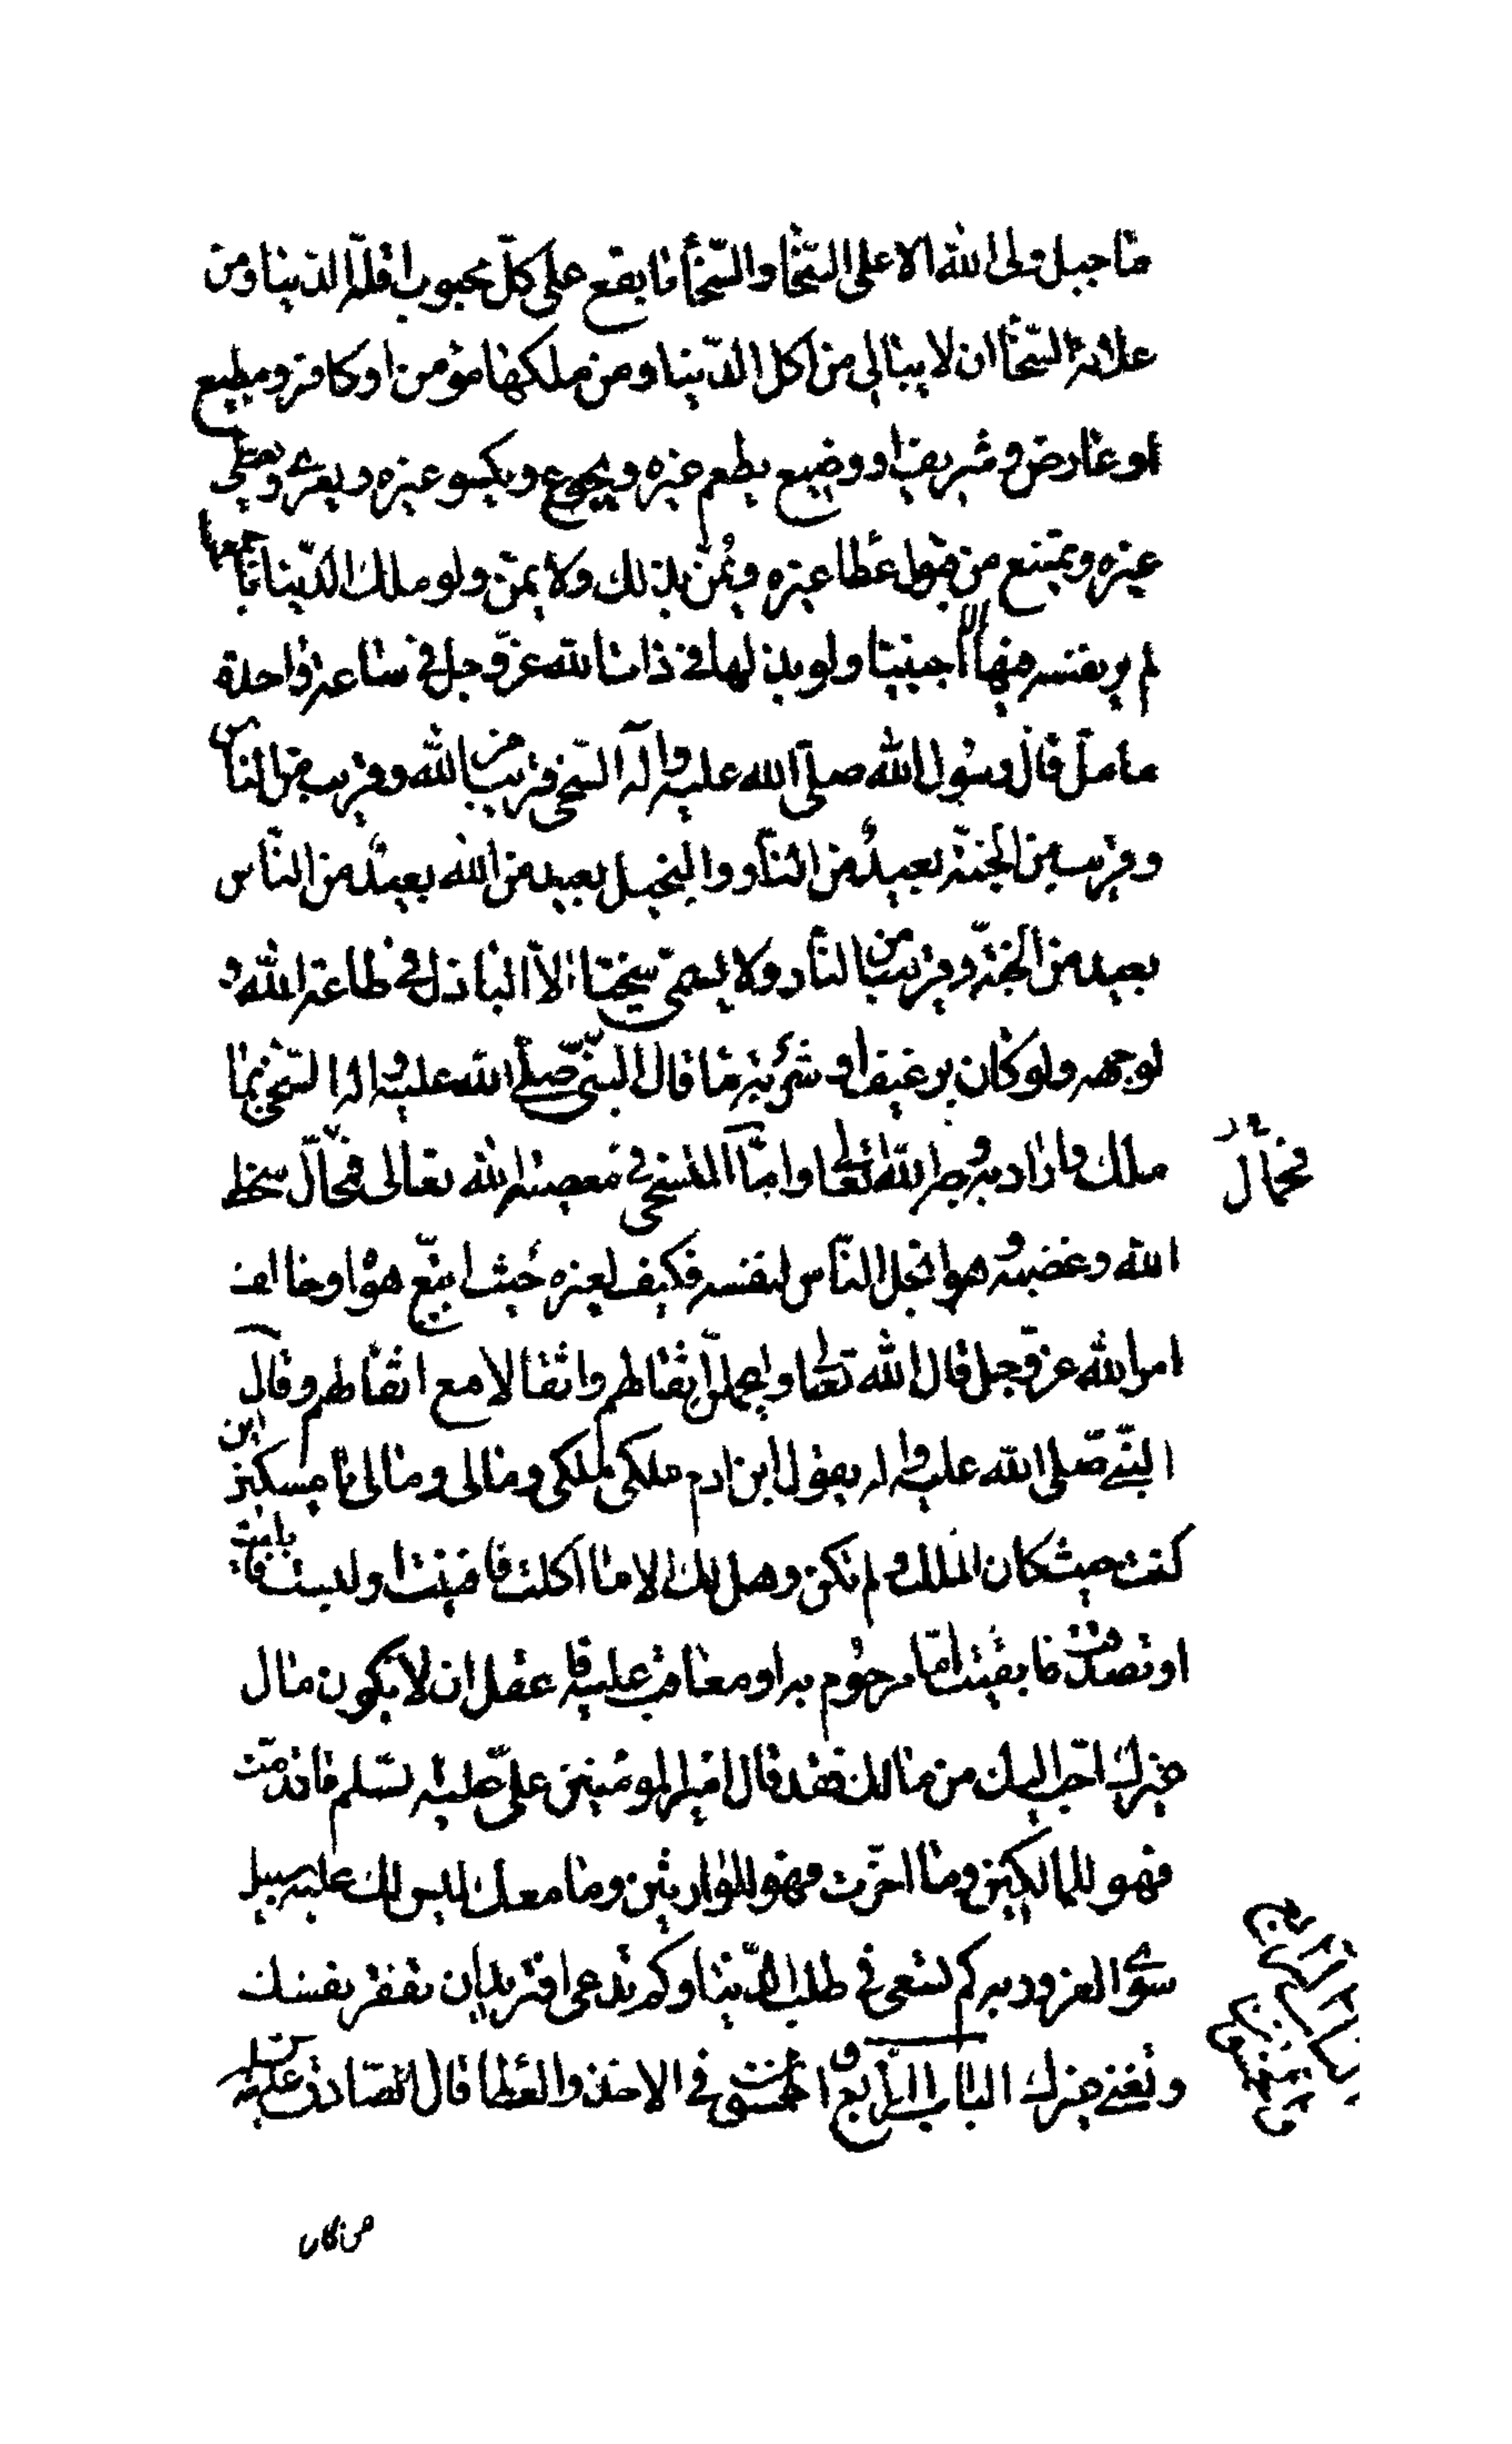 ما جبل ولى الله الا على السّخا والسّخأ ما يقع على كلّ محبوب اقلّه الدنيا ومن
علامة السّخأ ان لا يبالى من اكل الدّنيا ومن ملكها مؤمن او كافر ومطيع
او عاص وشريف او وضيع يطعم غيره ويجوع ويكسو غيره ويعرى ويعطى
غيره ويمتنع من قبول عطا غيره ويُمنّ بذلك ولا يمنّ ولو ملك الدّنيا باجمعها
لم ير نفسه فيها الا اجنبيّا ولو بذلها فى ذات الله عزّ وجل فى ساعة واحدة
ما ملّ قال رسول الله صلّى الله عليه وآله السّخى قريب من الله وقريب من الناس
وقريب من الجنّة بعيدٌ من النار والبخيل بعيد من الله بعيدٌ من النّاس
بعيد من الجنّة وقريب من النار ولا يسمّى سخيّا الاّ الباذل فى طاعة الله و
لوجهه ولو كان برغيف او شربة ما قال النبىّ صلّى الله عليه واله السّخى بما
ملك واراد به وجه الله تعالى وامّا المتسخى فى معصية الله تعالى فحمّال سخط
الله وغضبه وهو ابخل النّاس لنفسه فكيف لغيره حيث اتبع هواه وخالف
امر الله عز وّجل قال الله تعالى وليحملنّ اثقالهم واثقالا مع اثقالهم وقال
النبىّ صّلى الله عليه واله يقول ابن ادم ملكى ملكى ومالى ومالى يا مسكين اين
كنت حيث كان الملك ولم تكن وهل لك الا ما اكلت فافنيت او لبست فابليت
او تصدقت فابقيت امّا مرحوم به او معاقب عليه فاعقل ان لا يكون مال
غيرك احبّ اليك من مالك فقد قال امير المؤمنين علىّ عليه لسّلم ما قدمّت
فهو للمالكين وما اخّرت فهو للوارثين وما معك ليس لك عليه سبيل
سوى الغرور به كم تسعى فى طلب الدّنيا وكم تدعى افتريد ان تفقر نفسك
وتغنى غيرك الباب الرّابع والستون فى الاخذ والعطا قال الصّادق عليه السّلم
فحمال
من كان